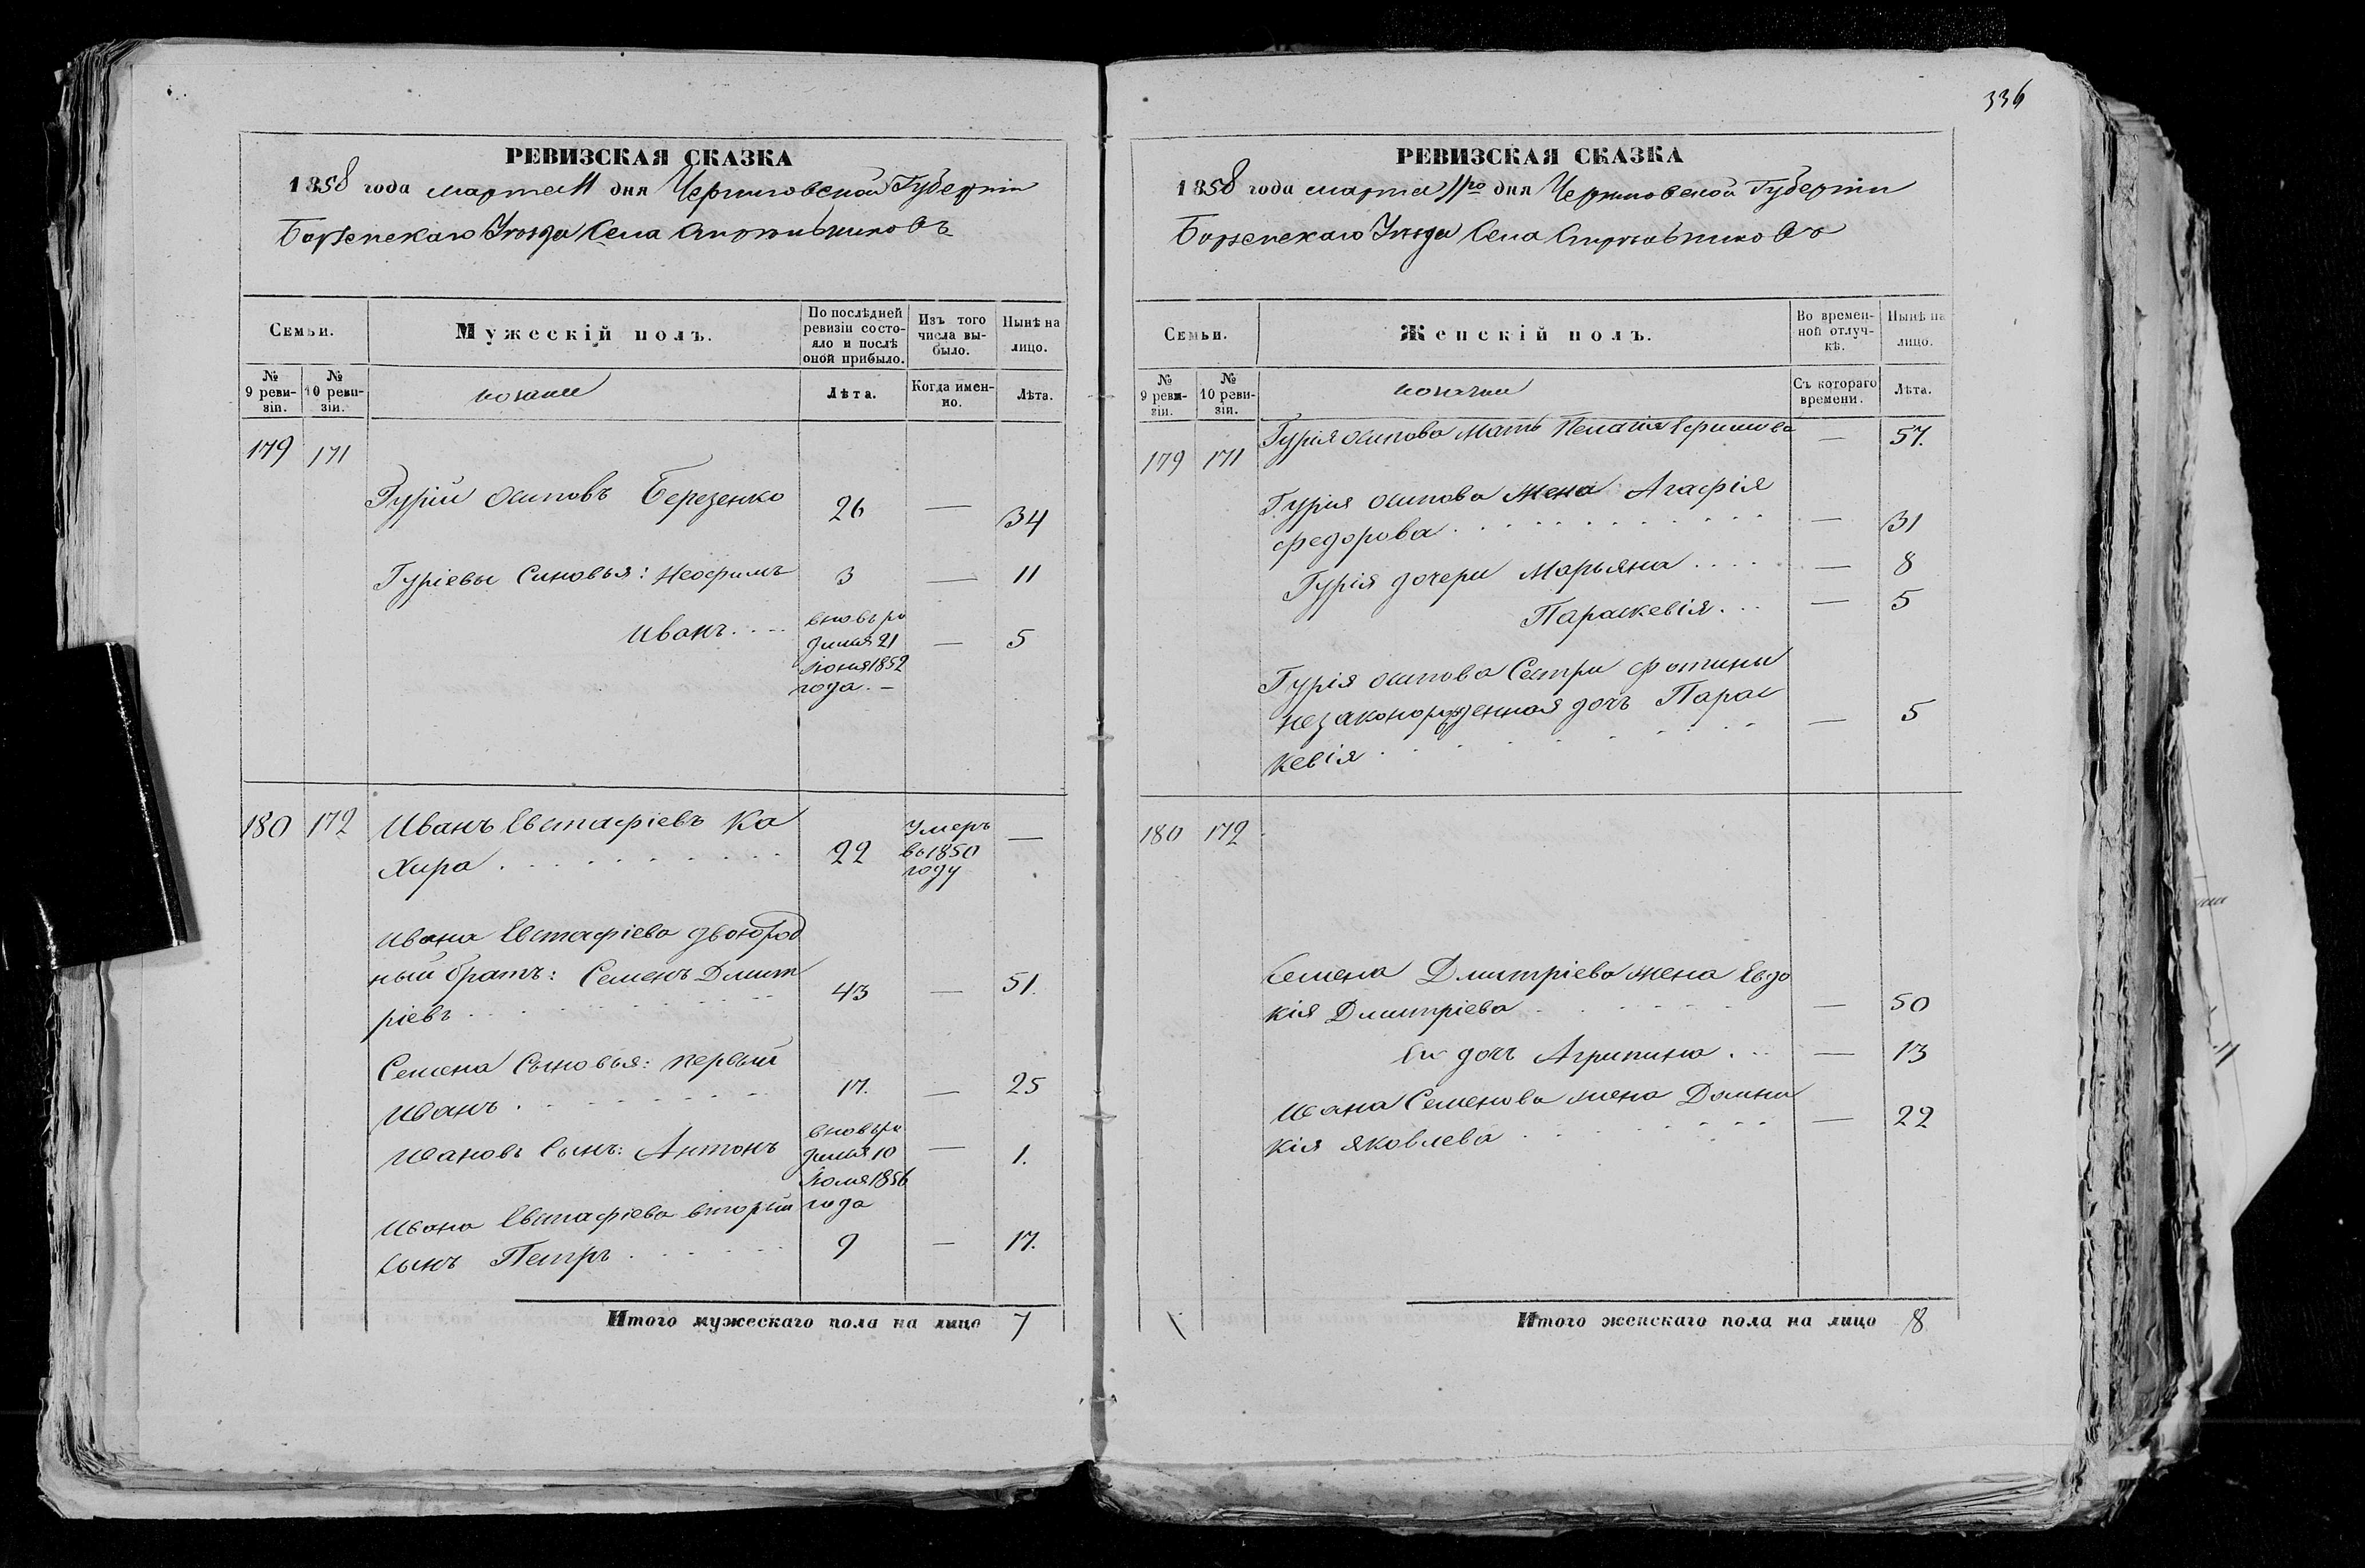 РЕВИЗСКАЯ СКАЗКА
1858 года марта 11 дня Черниговской Губерніи
Борзенскаго Уѣзда Села Стрѣльниковъ
Семьи.
Мужескій полъ.
По послѣдней ревизіи состояло и послѣ оной прибыло.
Изъ того числа выбыло.
Нынѣ на лицо.
№ 9 ревизіи.
№ 10 ревизіи.
козаки
Лѣта.
Когда именно.
Лѣта.
179 171
Гурій Осиповъ Березенко 26 — 34
Гуріевы Синовья: Неофимъ 3 — 11
Иванъ.... вновь ро
дился 21 — 5
Іюня 1852
года. —
180 172 Иванъ Евстафіевъ Ка
хира . . . . 22 Умеръ
въ 1850
году —
Ивана Евстафіева двоюрод
ный братъ: Семенъ Дмит
ріевъ . . . . 43 — 51.
Семена Сыновья: первый
Иванъ . . . . 17. — 25
Ивановъ Сынъ: Антонъ вновь ро
дился 10 — 1.
Іюля 1856
года
Ивана Евстафіева вторый
сынъ Петръ . . . . 9 — 17.
Итого мужескаго пола на лицо 7
336
РЕВИЗСКАЯ СКАЗКА
1858 года марта 11го дня Черниговской Губерніи
Борзенскаго Уѣзда Села Стрѣльниковъ
Семьи.
Женскій полъ.
Во временной отлучкѣ.
Нынѣ на лицо.
№ 9 ревизіи.
№ 10 ревизіи.
козачки
Съ котораго времени.
Лѣта.
179 171 Гурія Осипова Мать Пелагія — 57.
Гурія Осипова Жена Агафія
федорова . . . . — 31
Гурія дочери Марьяна . . . . — 8
Параскевія . . . — 5
Гурія Осипова Сестри Фотины
незаконорожденная дочь Парас
кевія . . . . — 5
180 172
Семена Дмитріева жена Евдо
кія Дмитріева . . . . — 50
Ея дочь Агрипина . . . — 13
Ивана Семенова жена Домни
кія Яковлева . . . . — 22
Итого женскаго пола на лицо 8